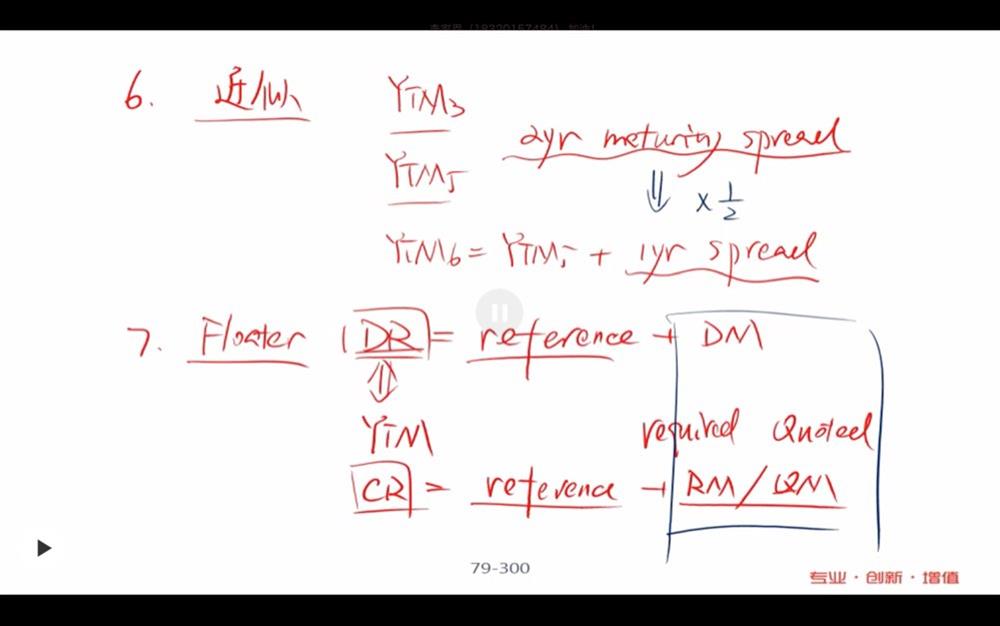 6. 近似 YTM3
YTM5 2yr maturity spread
⇓ × 1/2
YTM6 = YTM5 + 1yr spread
7. Floater (DR) = reference + DM
⇕
YTM required Quoted
CR = reference + RM/QM
79-300
专业·创新·增值